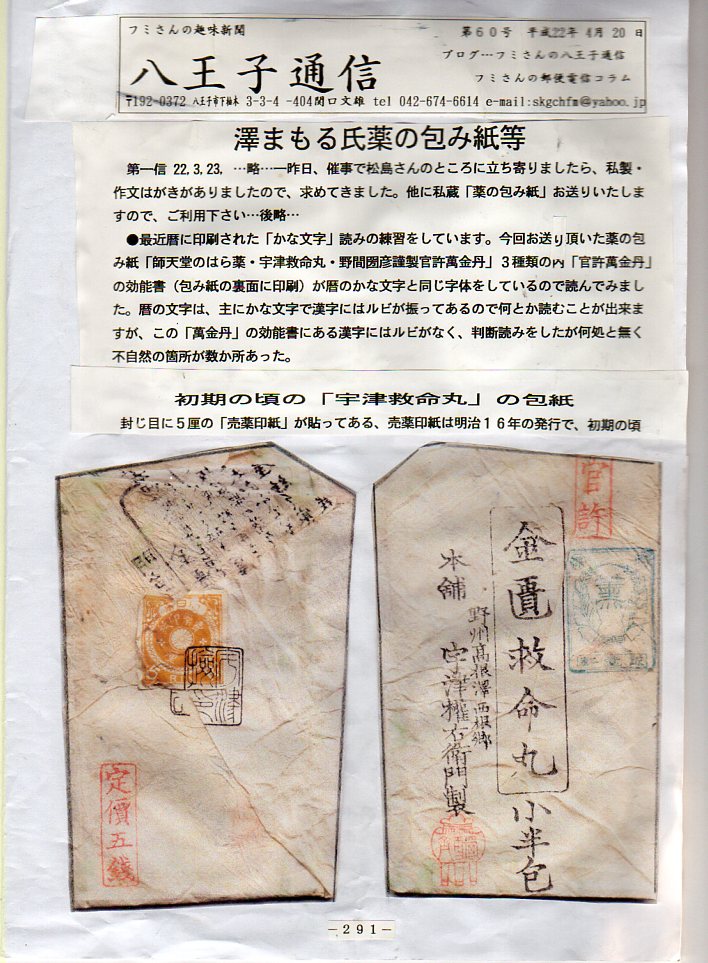 フミさんの趣味新聞
第60号 平成22年4月20日
ブログ…フミさんの八王子通信
八王子通信
フミさんの郵便電信コラム
〒192-0372 八王子市下柚木 3-3-4 -404関口文雄 tel 042-674-6614 e-mail:skgchfm@yahoo.jp
澤まもる氏薬の包み紙等
第一信 22.3.23. …略…一昨日、催事で松島さんのところに立ち寄りましたら、私製・
作文はがきがありましたので、求めてきました。他に私蔵「薬の包み紙」お送りいたしま
すので、ご利用下さい…後略…
●最近暦に印刷された「かな文字」読みの練習をしています。今回お送り頂いた薬の包
み紙「師天堂のはら薬・宇津救命丸・野間圀彦謹製官許萬金丹」3種類の内「官許萬金丹」
の効能書(包み紙の裏面に印刷)が暦のかな文字と同じ字体をしているので読んでみまし
た。暦の文字は、主にかな文字で漢字にはルビが振ってあるので何とか読むことが出来ま
すが、この「萬金丹」の効能書にある漢字にはルビがなく、判断読みをしたが何処と無く
不自然の箇所が数か所あった。
初期の頃の「宇津救命丸」の包紙
封じ目に5厘の「売薬印紙」が貼ってある、売薬印紙は明治16年の発行で、初期の頃
定價五銭
官許
金匱救命丸 小半包
野州高根澤西根郷
本舗 宇津權右衛門製
-291-